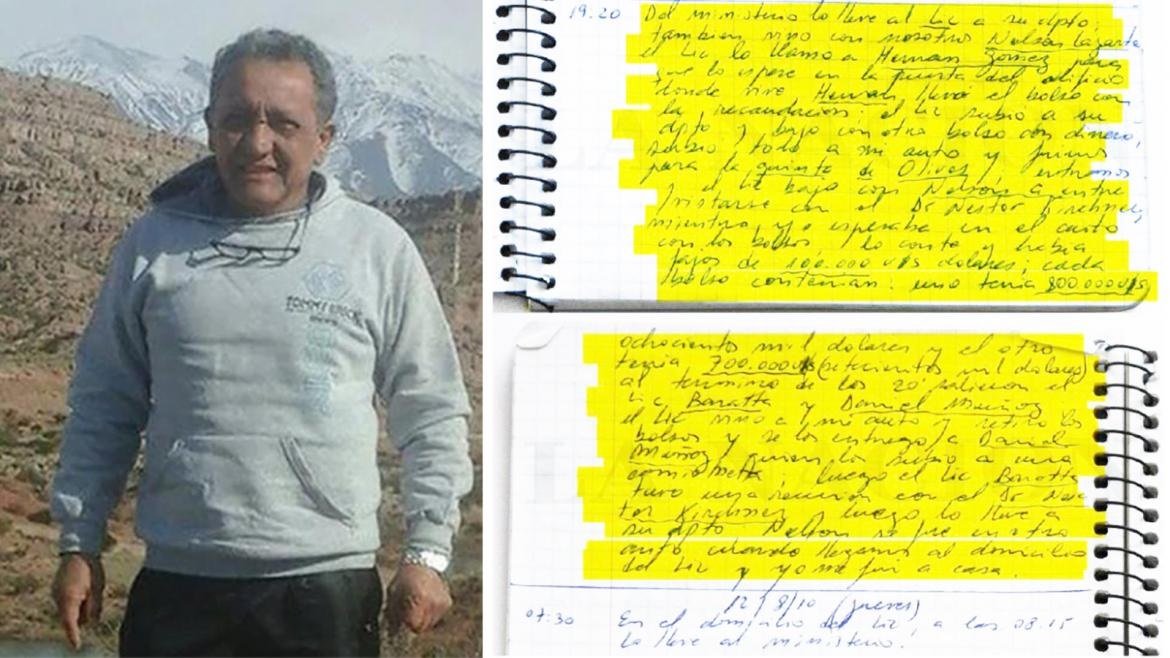 TOMMY BROCK
19:20 Del ministerio lo lleve al Lic a su dpto;
tambien vino con nosotros Nelson Lazarte,
el Lic lo llamo a Hernan Gomez para
que lo espere en la puerta del edificio
donde vive Hernan llevó el bolso con
la recaudacion; el Lic subio a su
dpto y bajo con otro bolso con dinero,
subio todo a mi auto y fuimos
para la quinta de Olivos, entramos
el Lic bajo con Nelson a entre
vistarse con el Dr Nestor Kirchner,
mientras yo esperaba en el auto
con los bolsos, lo conte y habia
fajos de 100.000 u$s dolares; cada
bolso contenian: uno tenia 800.000 u$s,
ochociento mil dolares y el otro
tenia 700.000 u$s (setecientos mil dolares)
al termino de los 20' salieron el
Lic Baratta y Daniel Muñoz
el Lic vino a mi auto y retiro los
bolsos y se los entrego a Daniel
Muñoz, quien los subio a una
camioneta; luego el Lic Baratta
tuvo una reunion con el Dr Nes
tor Kirchner, y luego lo lleve a
su dpto Nelson se fue en otro
auto cuando llegamos al domicilio
del Lic y yo me fui a casa.
12/8/10 (jueves)
07:30 En el domicilio del Lic, a las 08.15
lo lleve al ministerio.